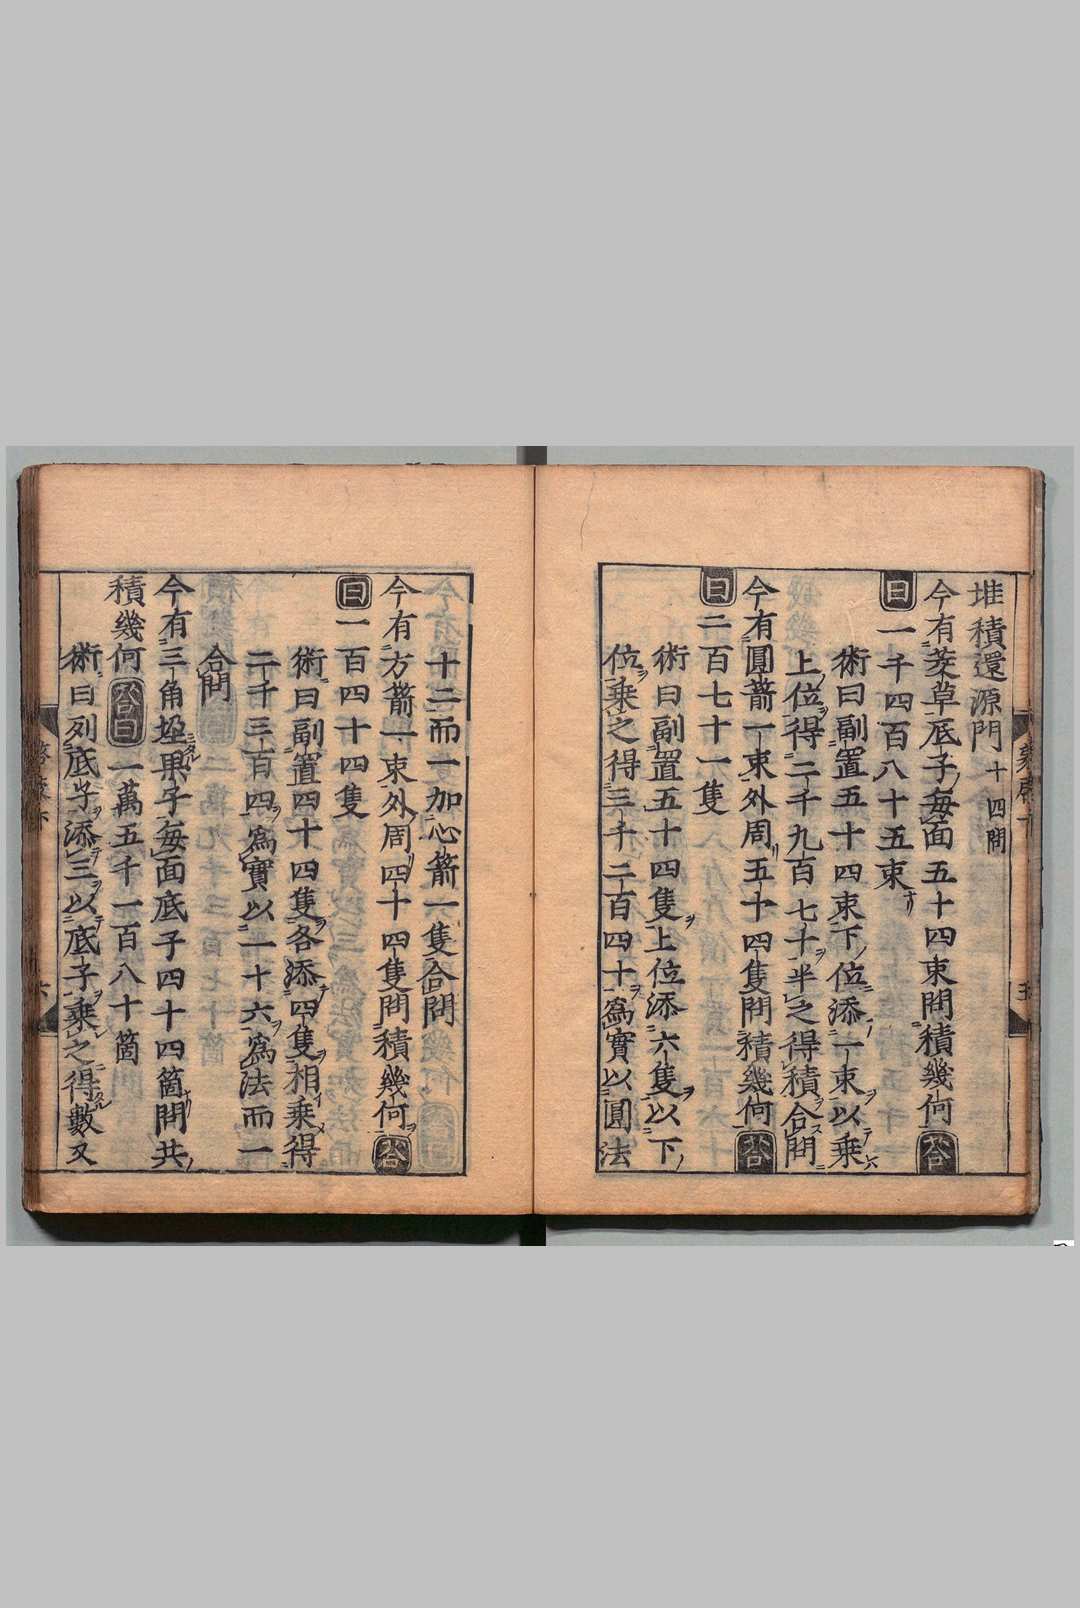 堆積還源門十四問
今有茭草底子每面五十四束問積幾何荅
曰一千四百八十五束
術曰副置五十四束下位添一束以乗
上位得二千九百七十半之得積合問
今有圓箭一束外周五十四隻問積幾何荅
曰二百七十一隻
術曰副置五十四隻上位添六隻以下
位乗之得三千二百四十爲實以圓法
十二而一加心箭一隻合問
今有方箭一束外周四十四隻問積幾何荅
曰一百四十四隻
術曰副置四十四隻各添四隻相乗得
二千三百四爲實以一十六爲法而一
合問
今有三角垜果子每面底子四十四箇問共
積幾何荅曰一萬五千一百八十箇
術曰列底子添三以底子乗之得數又